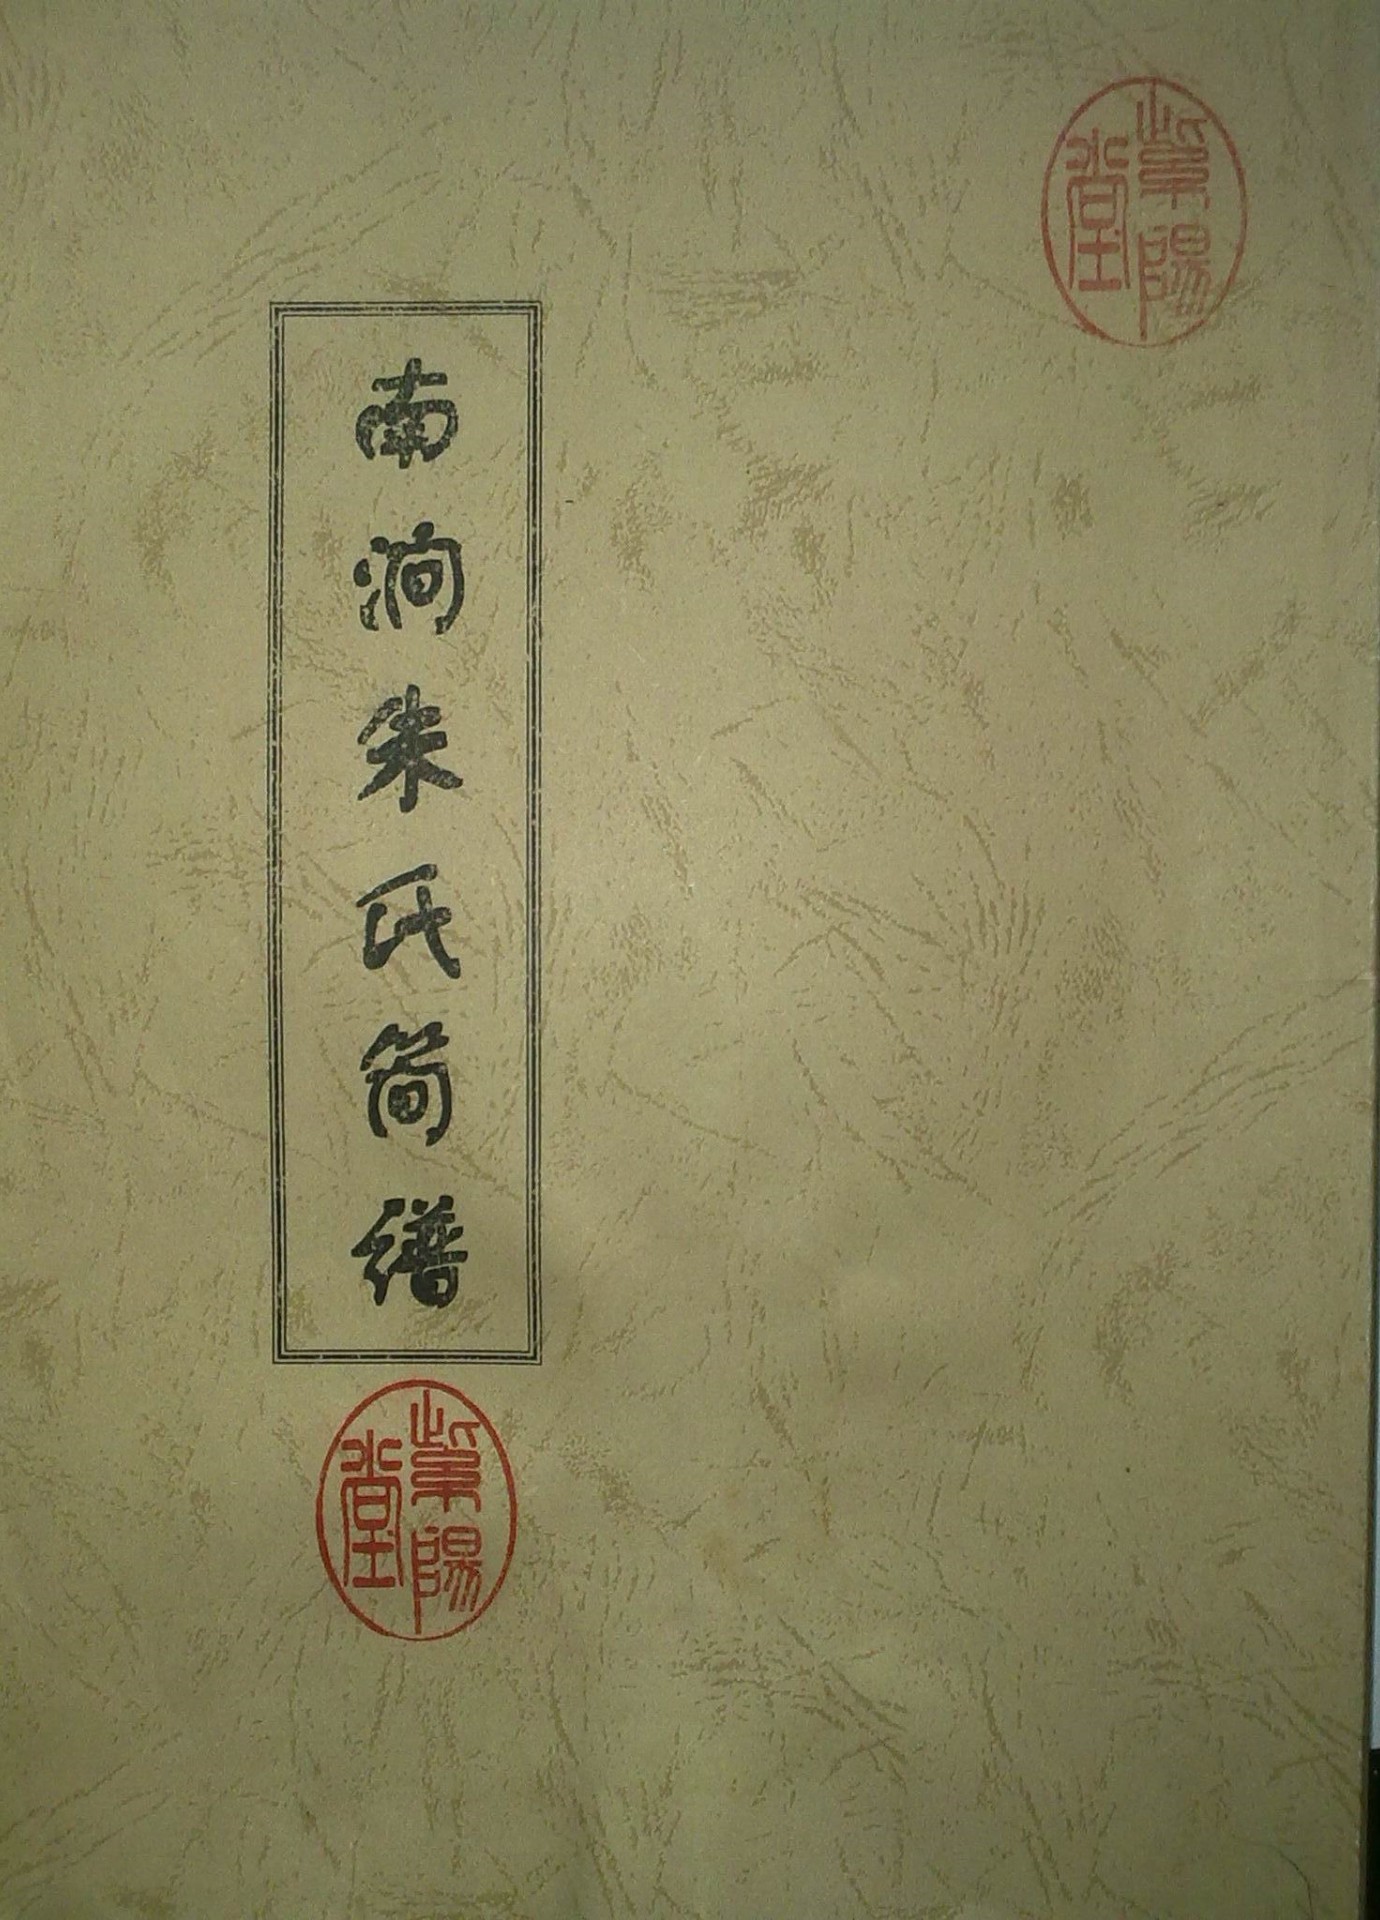 紫陽堂
南涧朱氏简谱
紫陽堂